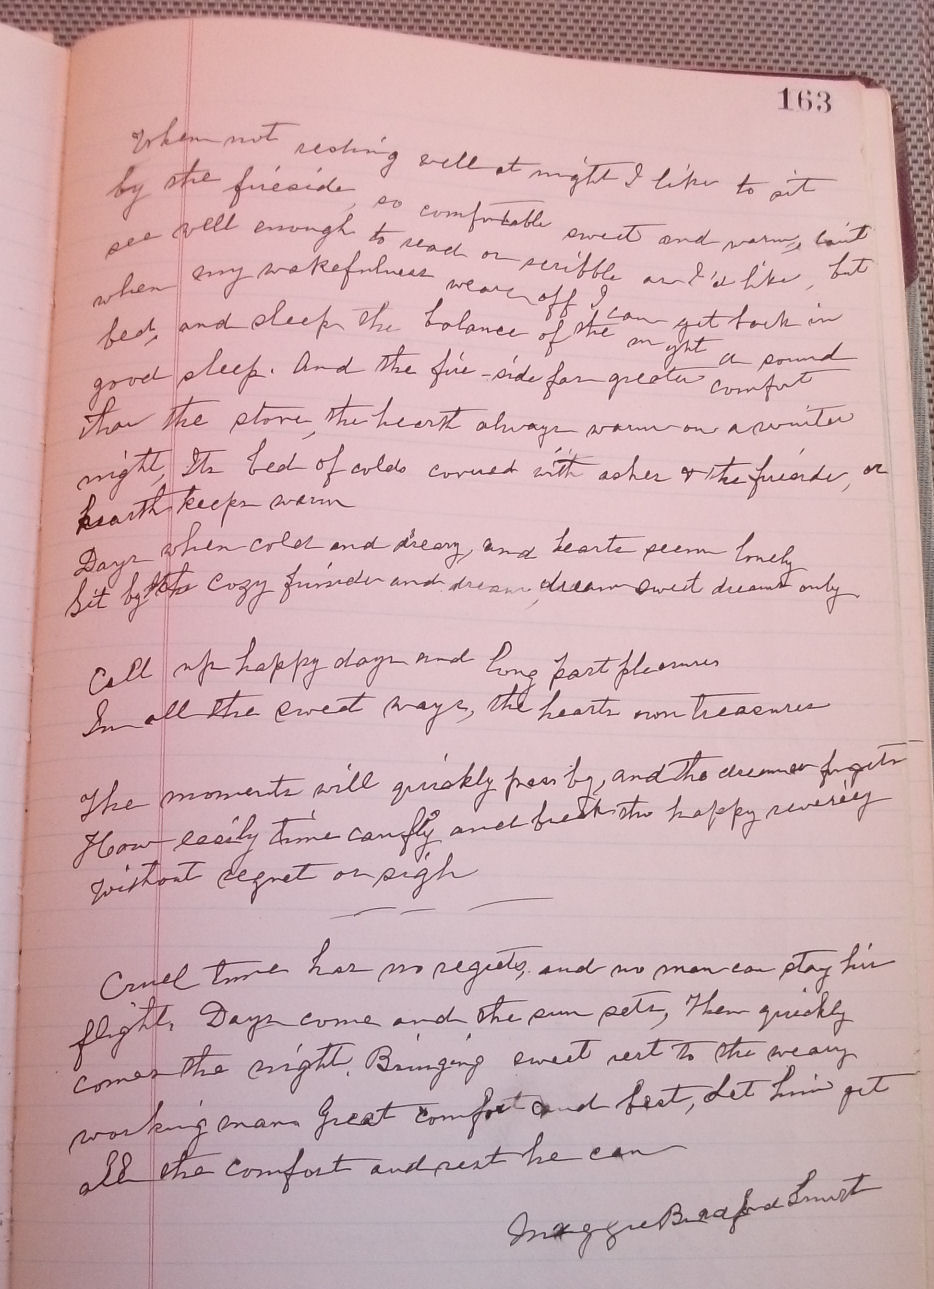 163
When not resting well at night I like to sit
by the fireside, so comfortable sweet and warm, can't
see well enough to read or scribble as I'd like, but
when my wakefulness wears off I can get back in
bed, and sleep the balance of the night a sound
good sleep. And the fire-side far greater comfort
than the stove, the hearth always warm on a winter
night, Its bed of colds covered with ashes & the fireside, or
hearth keeps warm
Days when cold and dreary, and hearts seem lonely
Sit by the cozy fireside and dream, dream sweet dreams only
Call up happy days and long past pleasures
In all the sweet ways, the hearts own treasures
The moments will quickly pass by, and the dreamer forgets
How easily time can fly and break the happy reveriey
Without regret or sigh
Cruel time has no regrets, and no man can stay his
flight. Days come and the sun sets, Then quickly
comes the night. Bringing sweet rest to the weary
working man. Great comfort and best, Let him get
all the comfort and rest he can
Maggie Bradford